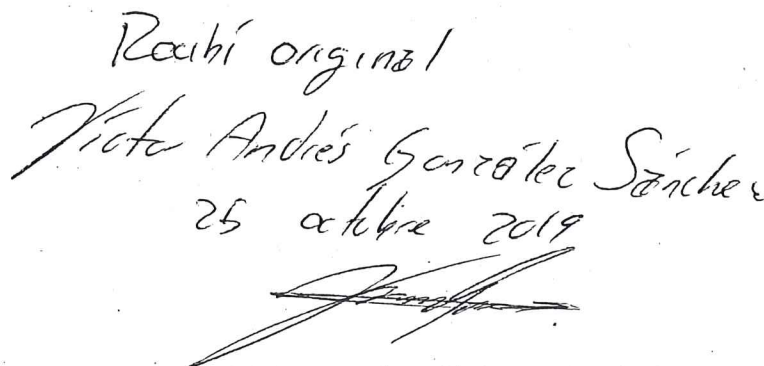 Recibí original
Víctor Andrés González Sánchez
25 octubre 2019